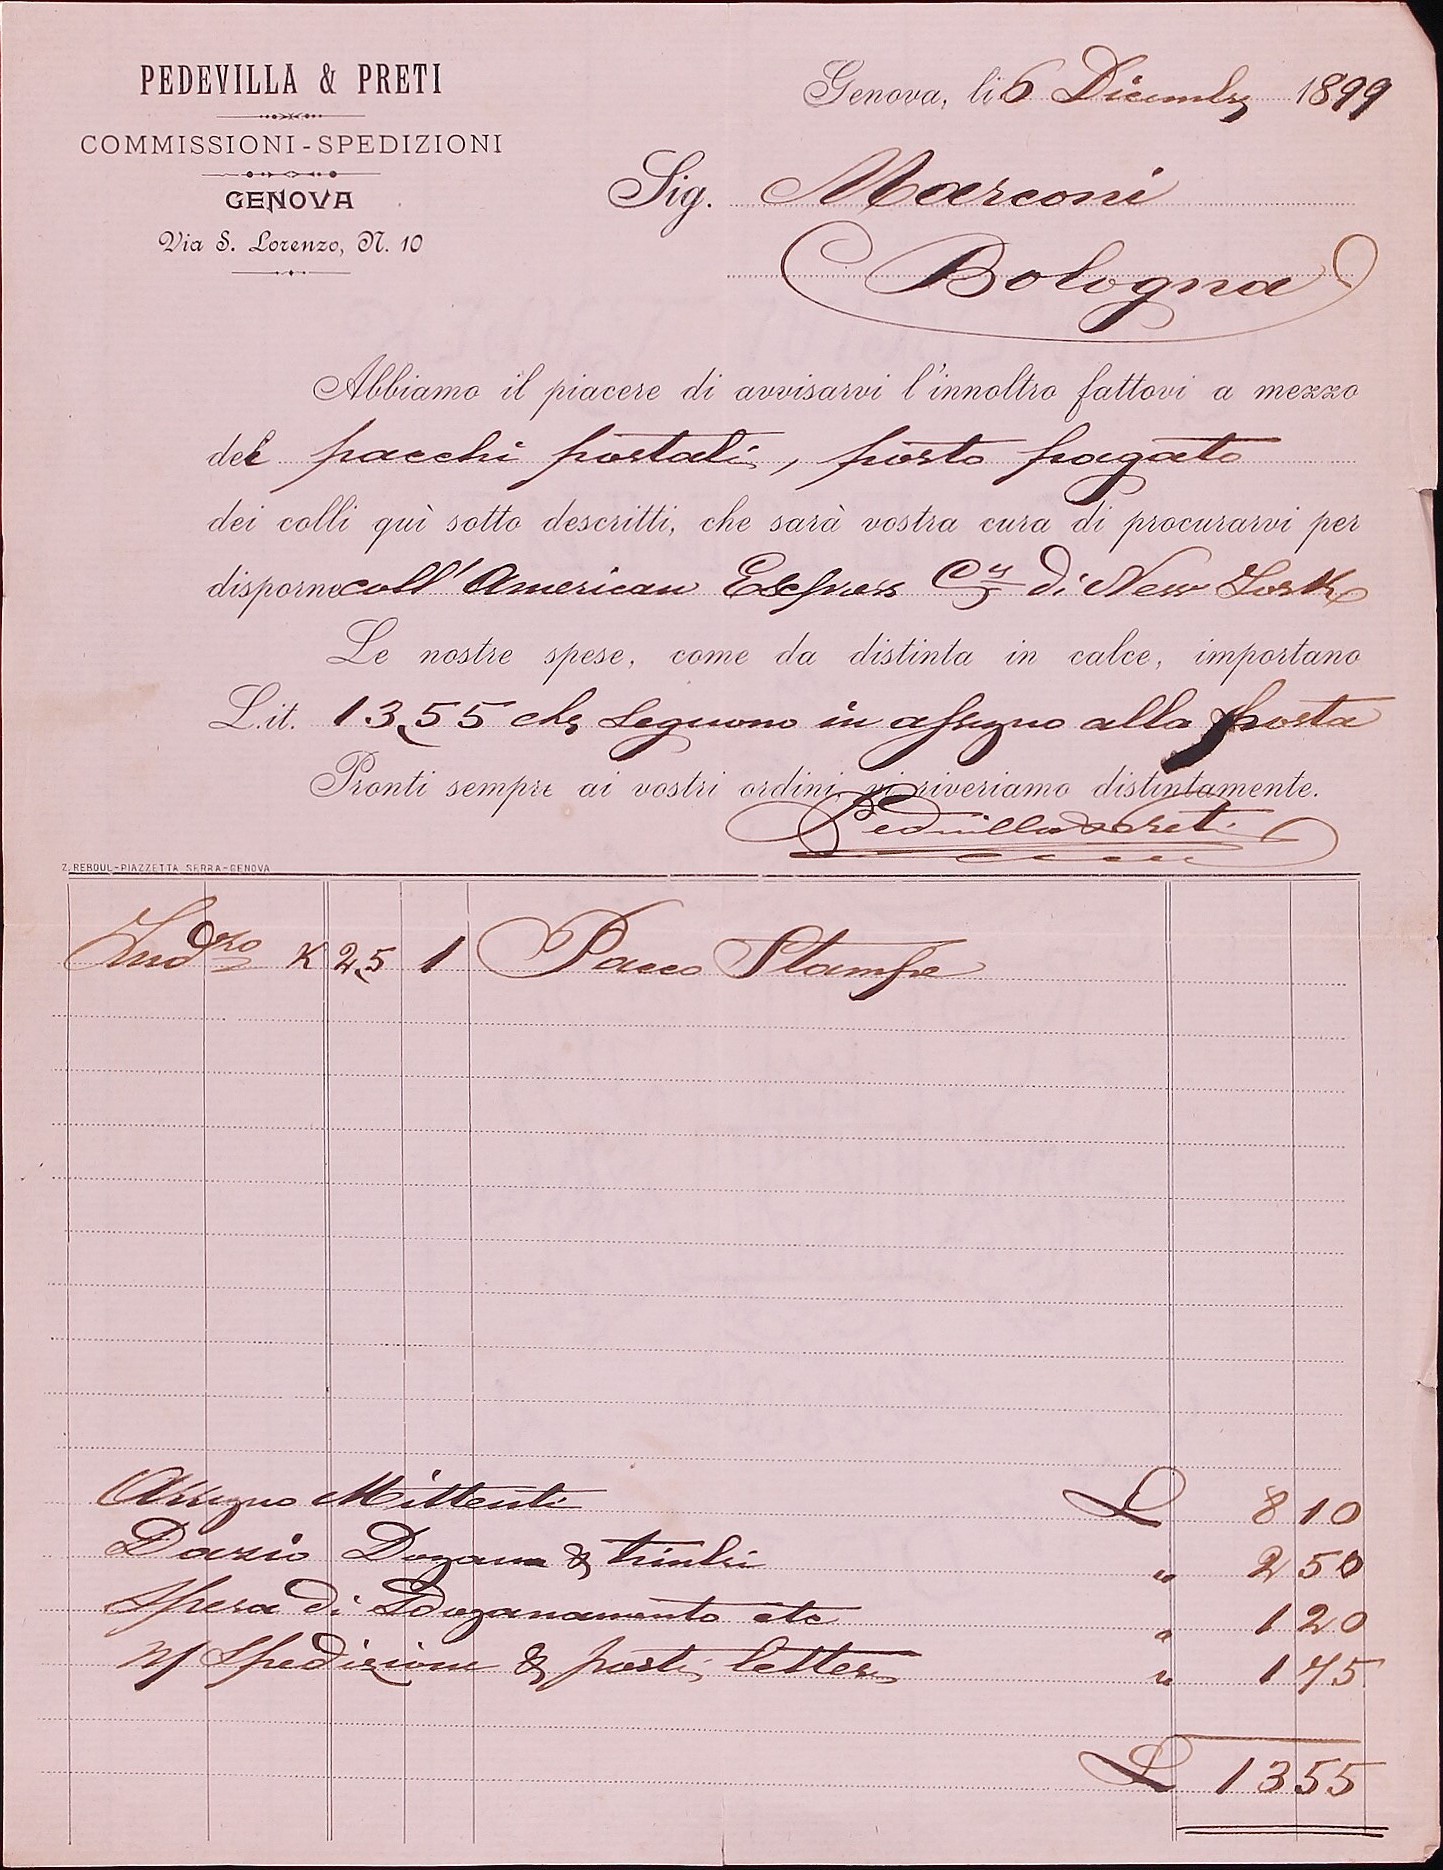 PEDEVILLA & PRETI
COMMISSIONI - SPEDIZIONI
GENOVA
Via S. Lorenzo, N. 10
Genova, li 6 Dicembre 1899
Sig. Marconi
Bologna
Abbiamo il piacere di avvisarvi l'innoltro fattovi a mezzo
dei pacchi postali, porto pagato
dei colli quì sotto descritti, che sarà vostra cura di procurarvi per
disporne coll' American Express Cy di New York
Le nostre spese, come da distinta in calce, importano
L.it. 13,55 che seguono in assegno alla posta
Pronti sempre ai vostri ordini, vi riveriamo distintamente.
Pedevilla & Preti
Z. REBOUL-PIAZZETTA SERRA-GENOVA
Indzzo K 2,5 1 Pacco Stampe
Assegno Mittenti L 8 10
Dazio Dogana & trimbri " 2 50
Spesa di Doganamento etc " 1 20
n/ Spedizione & posti, lettere " 1 75
L 13 55